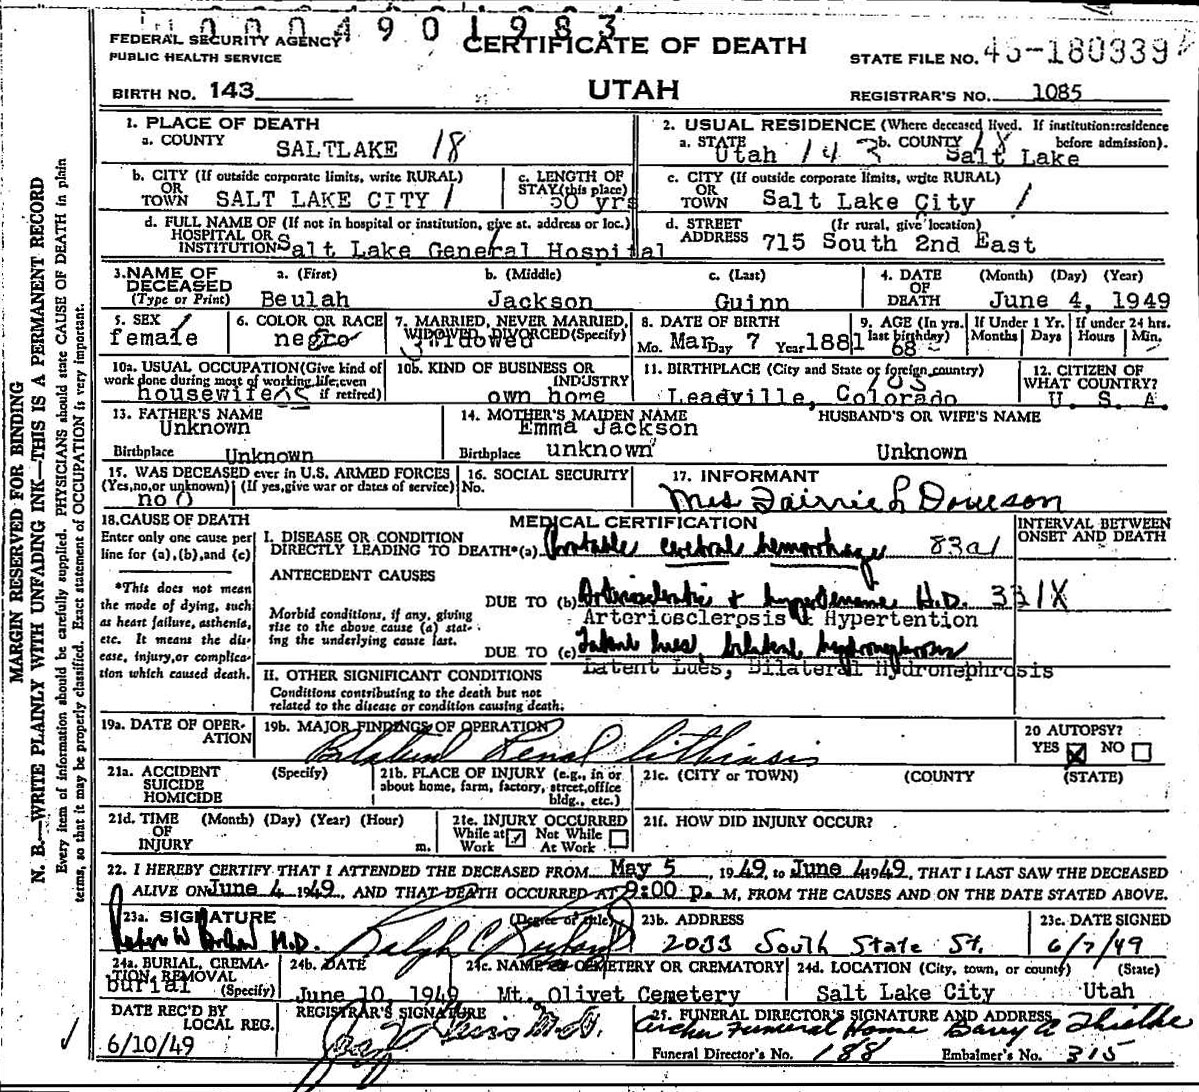 0004901983
FEDERAL SECURITY AGENCY
PUBLIC HEALTH SERVICE
CERTIFICATE OF DEATH
STATE FILE NO. 180339
BIRTH NO. 143
UTAH
REGISTRAR'S NO. 1085
MARGIN RESERVED FOR BINDING
N. B.—WRITE PLAINLY WITH UNFADING INK—THIS IS A PERMANENT RECORD
Every item of information should be carefully supplied. PHYSICIANS should state CAUSE OF DEATH in plain
terms, so that it may be properly classified. Exact statement of OCCUPATION is very important.
1. PLACE OF DEATH
a. COUNTY SALTLAKE 18
2. USUAL RESIDENCE (Where deceased lived. If institution:residence before admission).
a. STATE Utah 143 b. COUNTY 18 Salt Lake
b. CITY (If outside corporate limits, write RURAL) OR TOWN SALT LAKE CITY 1
c. LENGTH OF STAY (this place) 50 yrs
c. CITY (If outside corporate limits, write RURAL) OR TOWN Salt Lake City 1
d. FULL NAME OF (If not in hospital or institution, give st. address or loc.) HOSPITAL OR INSTITUTION Salt Lake General Hospital
d. STREET ADDRESS (If rural, give location) 715 South 2nd East
3. NAME OF DECEASED (Type or Print)
a. (First) Beulah
b. (Middle) Jackson
c. (Last) Guinn
4. DATE OF DEATH (Month) (Day) (Year) June 4, 1949
5. SEX female
6. COLOR OR RACE negro
7. MARRIED, NEVER MARRIED, WIDOWED, DIVORCED (Specify) widowed
8. DATE OF BIRTH Mo. Mar Day 7 Year 1881
9. AGE (In yrs. last birthday) 68
If Under 1 Yr. Months Days
If under 24 hrs. Hours Min.
10a. USUAL OCCUPATION (Give kind of work done during most of working life, even if retired) housewife
10b. KIND OF BUSINESS OR INDUSTRY own home
11. BIRTHPLACE (City and State or foreign country) Leadville, Colorado
12. CITIZEN OF WHAT COUNTRY? U. S. A.
13. FATHER'S NAME Unknown
Birthplace Unknown
14. MOTHER'S MAIDEN NAME Emma Jackson
Birthplace unknown
HUSBAND'S OR WIFE'S NAME
Unknown
15. WAS DECEASED ever in U.S. ARMED FORCES
(Yes, no, or unknown) (If yes, give war or dates of service)
no 0
16. SOCIAL SECURITY No.
17. INFORMANT
Mrs
18. CAUSE OF DEATH
Enter only one cause per line for (a), (b), and (c)
*This does not mean the mode of dying, such as heart failure, asthenia, etc. It means the disease, injury, or complication which caused death.
MEDICAL CERTIFICATION
INTERVAL BETWEEN ONSET AND DEATH
I. DISEASE OR CONDITION DIRECTLY LEADING TO DEATH*(a) Probable cerebral hemorrhage 83a1
ANTECEDENT CAUSES
Morbid conditions, if any, giving rise to the above cause (a) stating the underlying cause last.
DUE TO (b) Arteriosclerotic + hypertensive H.D. 331X
Arteriosclerosis & Hypertention
DUE TO (c) Latent lues, bilateral hydronephrosis
Latent Lues, Bilateral Hydronephrosis
II. OTHER SIGNIFICANT CONDITIONS
Conditions contributing to the death but not related to the disease or condition causing death.
19a. DATE OF OPERATION
19b. MAJOR FINDINGS OF OPERATION
Bilateral Renal Lithiasis
20 AUTOPSY? YES X NO
21a. ACCIDENT SUICIDE HOMICIDE (Specify)
21b. PLACE OF INJURY (e.g., in or about home, farm, factory, street, office bldg., etc.)
21c. (CITY or TOWN) (COUNTY) (STATE)
21d. TIME OF INJURY (Month) (Day) (Year) (Hour) m.
21e. INJURY OCCURRED While at Work Not While At Work
21f. HOW DID INJURY OCCUR?
22. I HEREBY CERTIFY THAT I ATTENDED THE DECEASED FROM May 5, 1949, to June 4 1949, THAT I LAST SAW THE DECEASED
ALIVE ON June 4 1949, AND THAT DEATH OCCURRED AT 9:00 p. M, FROM THE CAUSES AND ON THE DATE STATED ABOVE.
23a. SIGNATURE (Degree or title)
M.D. Ralph C
23b. ADDRESS
2033 South State St.
23c. DATE SIGNED
6/7/49
24a. BURIAL, CREMATION, REMOVAL (Specify) burial
24b. DATE June 10, 1949
24c. NAME OF CEMETERY OR CREMATORY Mt. Olivet Cemetery
24d. LOCATION (City, town, or county) (State) Salt Lake City Utah
DATE REC'D BY LOCAL REG.
6/10/49
REGISTRAR'S SIGNATURE
25. FUNERAL DIRECTOR'S SIGNATURE AND ADDRESS
Archer Funeral Home Barry A
Funeral Director's No. 188 Embalmer's No. 315